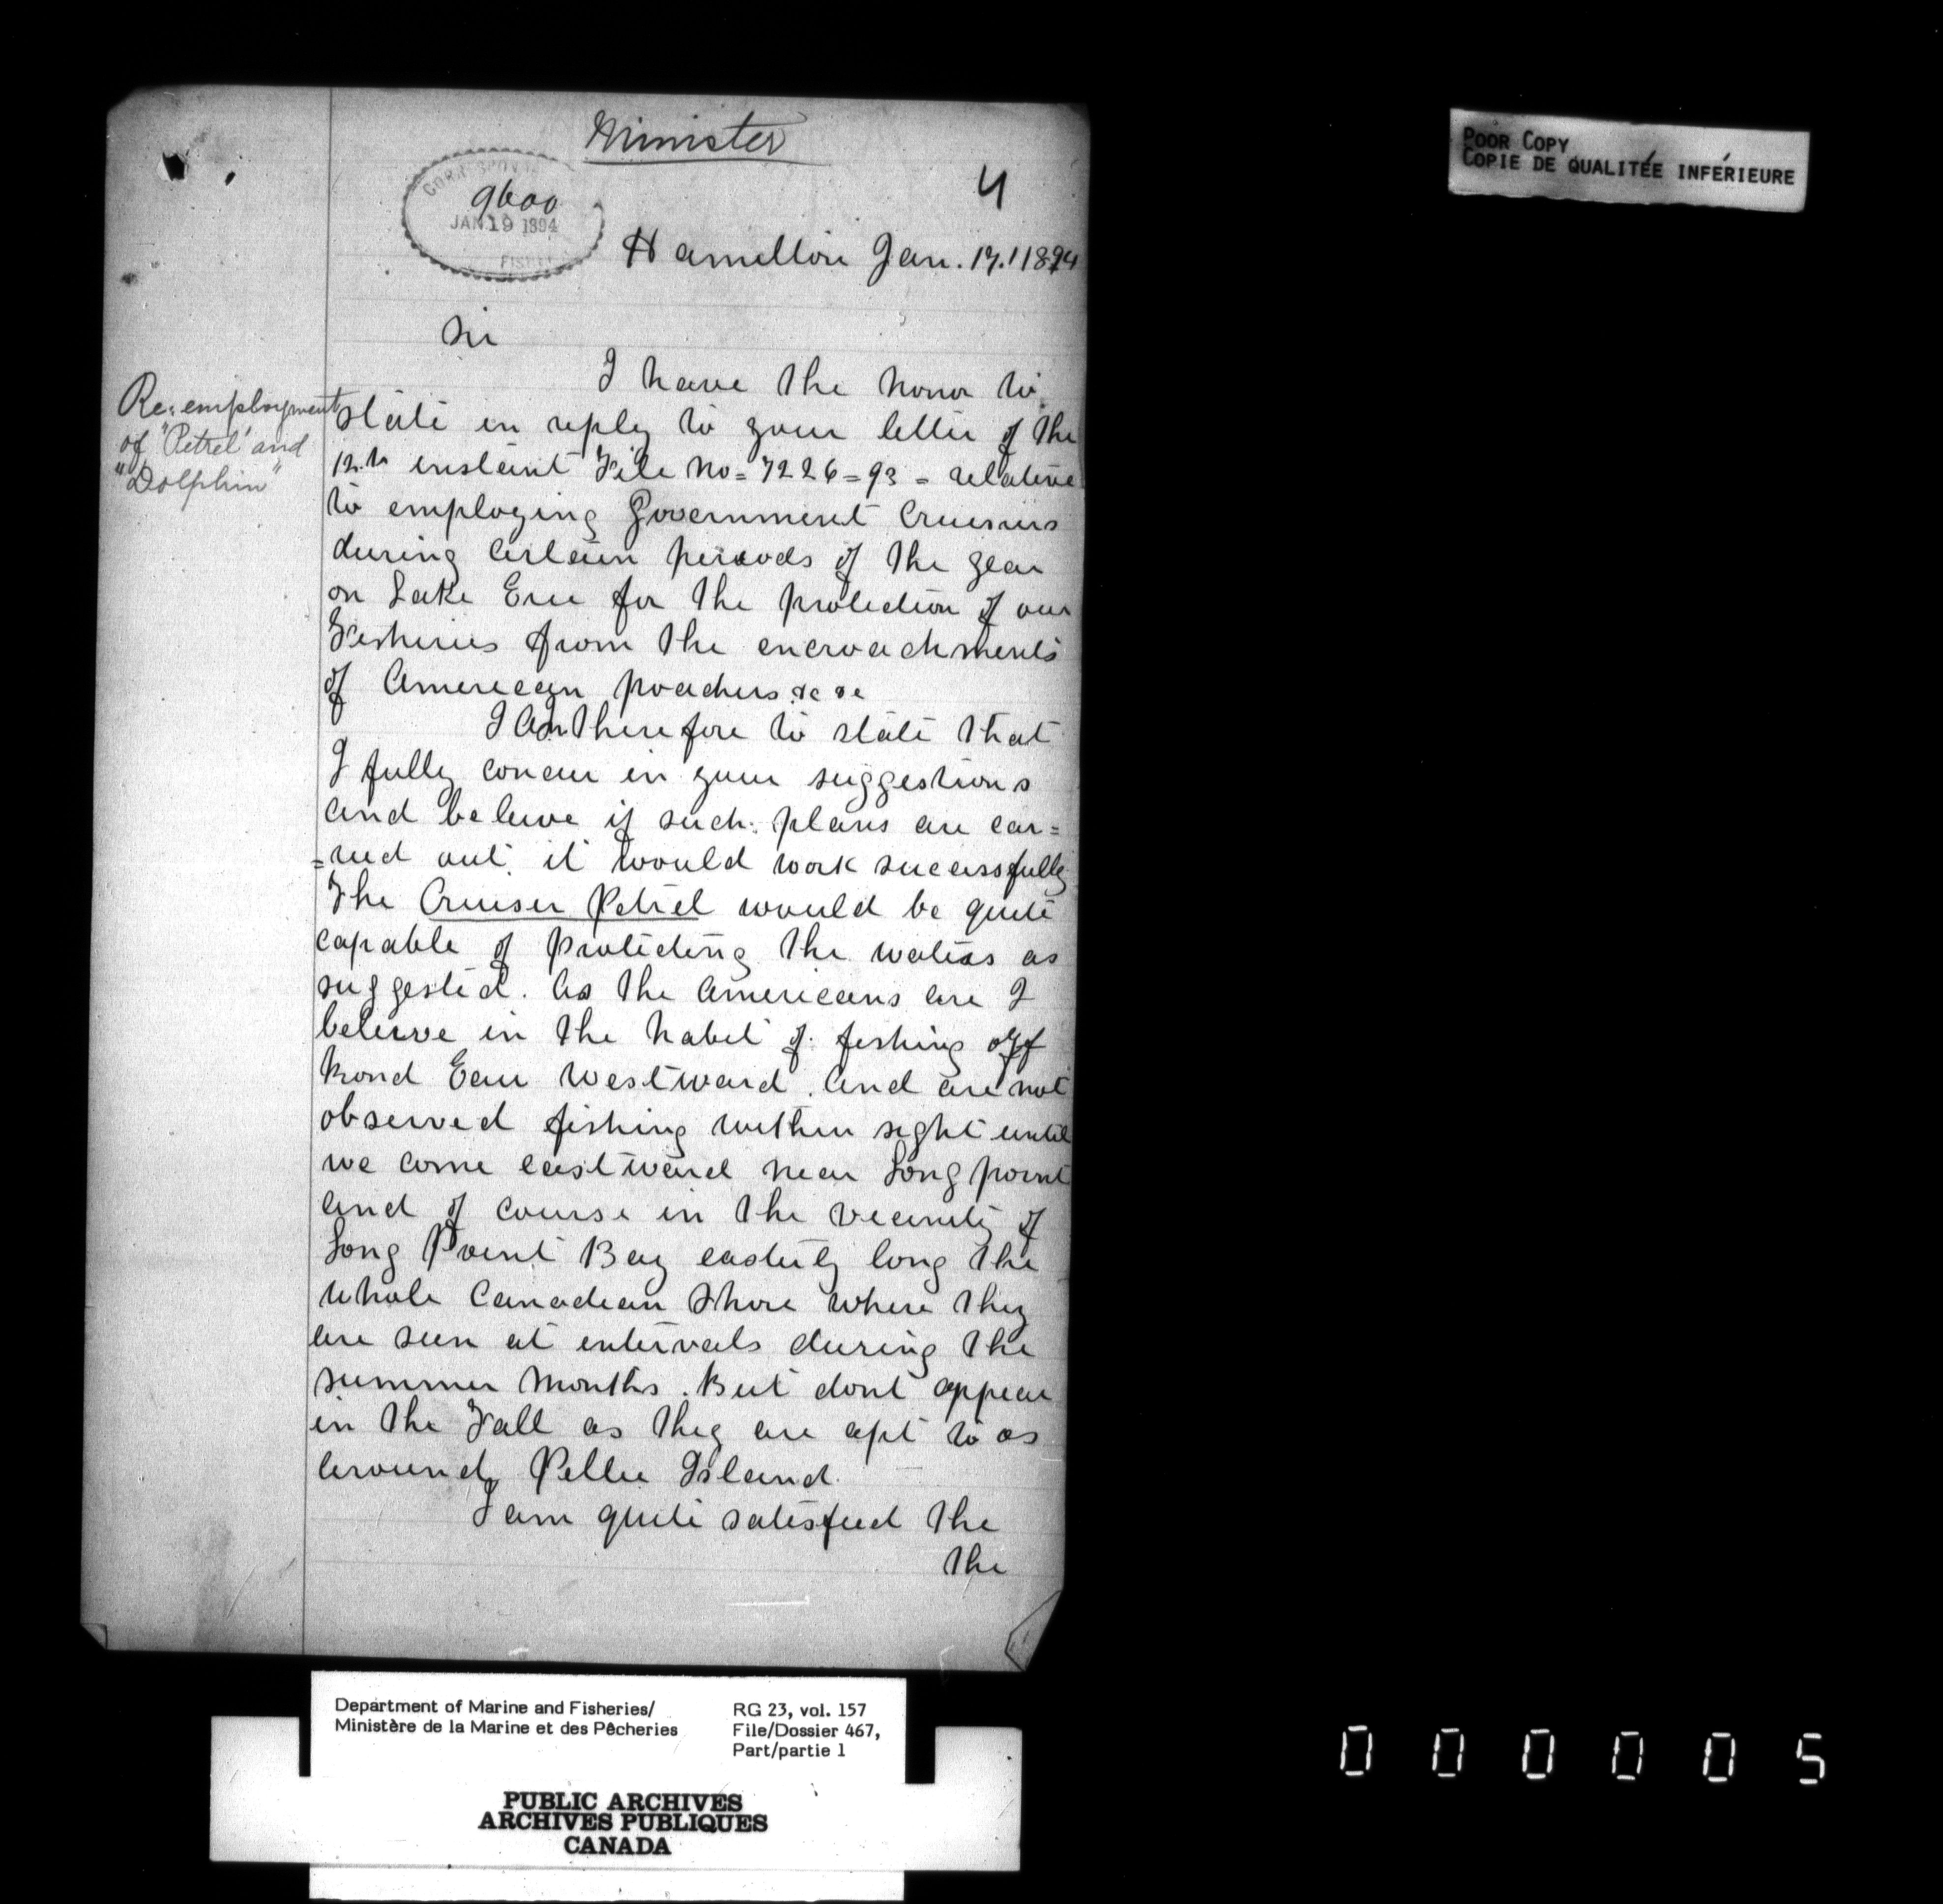 Minister
4
9600
JAN 19 1894
Hamilton Jan. 17. 1894
Sir
I have the honor to
state in reply to your letter of the
12.th instant File No= 7226=93 = relative
to employing Government Cruisers
during certain periods of the year
on Lake Erie for the protection of our
Fisheries from the encroachments
of American poachers &c &c
I am therefore to state that
I fully concur in your suggestions
and beleive if such plans are car=
=ried out it would work sucessfully
The Cruiser Petrel would be quite
capable of protecting the waters as
suggested. As the Americans are I
beleive in the habit of fishing off
Rond Eau Westward. And are not
observed fishing within sight until
we come eastward near Long point
and of course in the vicinity of
Long Point Bay easterly long the
whole Canadian Shore where they
are seen at intervals during the
summer Months. But dont appear
in the Fall as they are apt to as
around Pellee Island.
I am quite satisfied the
the
Re: employment
of "Petrel" and
"Dolphin"
POOR COPY
COPIE DE QUALITÉE INFÉRIEURE
Department of Marine and Fisheries/
Ministère de la Marine et des Pêcheries
RG 23, vol. 157
File/Dossier 467,
Part/partie 1
PUBLIC ARCHIVES
ARCHIVES PUBLIQUES
CANADA
000005